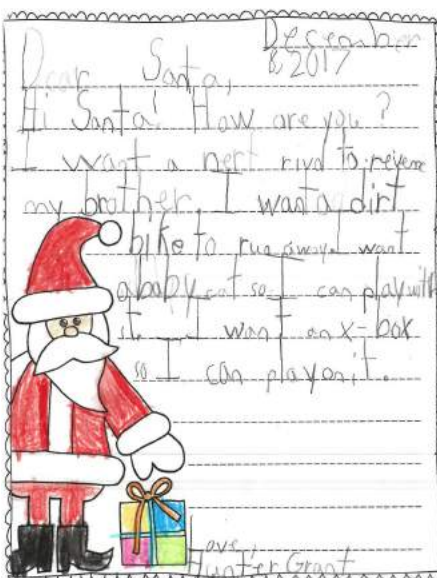 December
8 2017
Dear Santa,
Hi Santa! How are you?
I want a nerf to revene
my brother. I want a dirt
bike to run away. I want
a baby cat so I can play with
it. I want an x-box
so I can play on it.
Love,
Hunter Grant